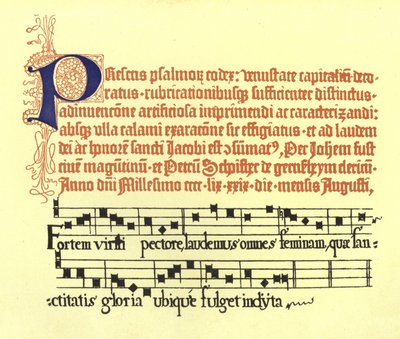 Presens psalmorꝫ codex: venustate capitaliū deco-
ratus· rubricationibusqꝫ sufficienter distinctus·
adinuencōne artificiosa imprimendi ac caracterizandi:
absqꝫ ulla calami exaracōne sic effigiatus· et ad laudem
dei ac honorē sancti Jacobi est ɔsūmatꝰ, Per Johem fust
civē magūtinū· et Petrū Schoifher de gernsheym clericū·
Anno dn̄i Millesimo cccc·lix·xxix·die·mensis Augusti,
Fortem virili pectore, laudemus omnes feminam, quæ san-
ctitatis gloria ubique fulget inclyta